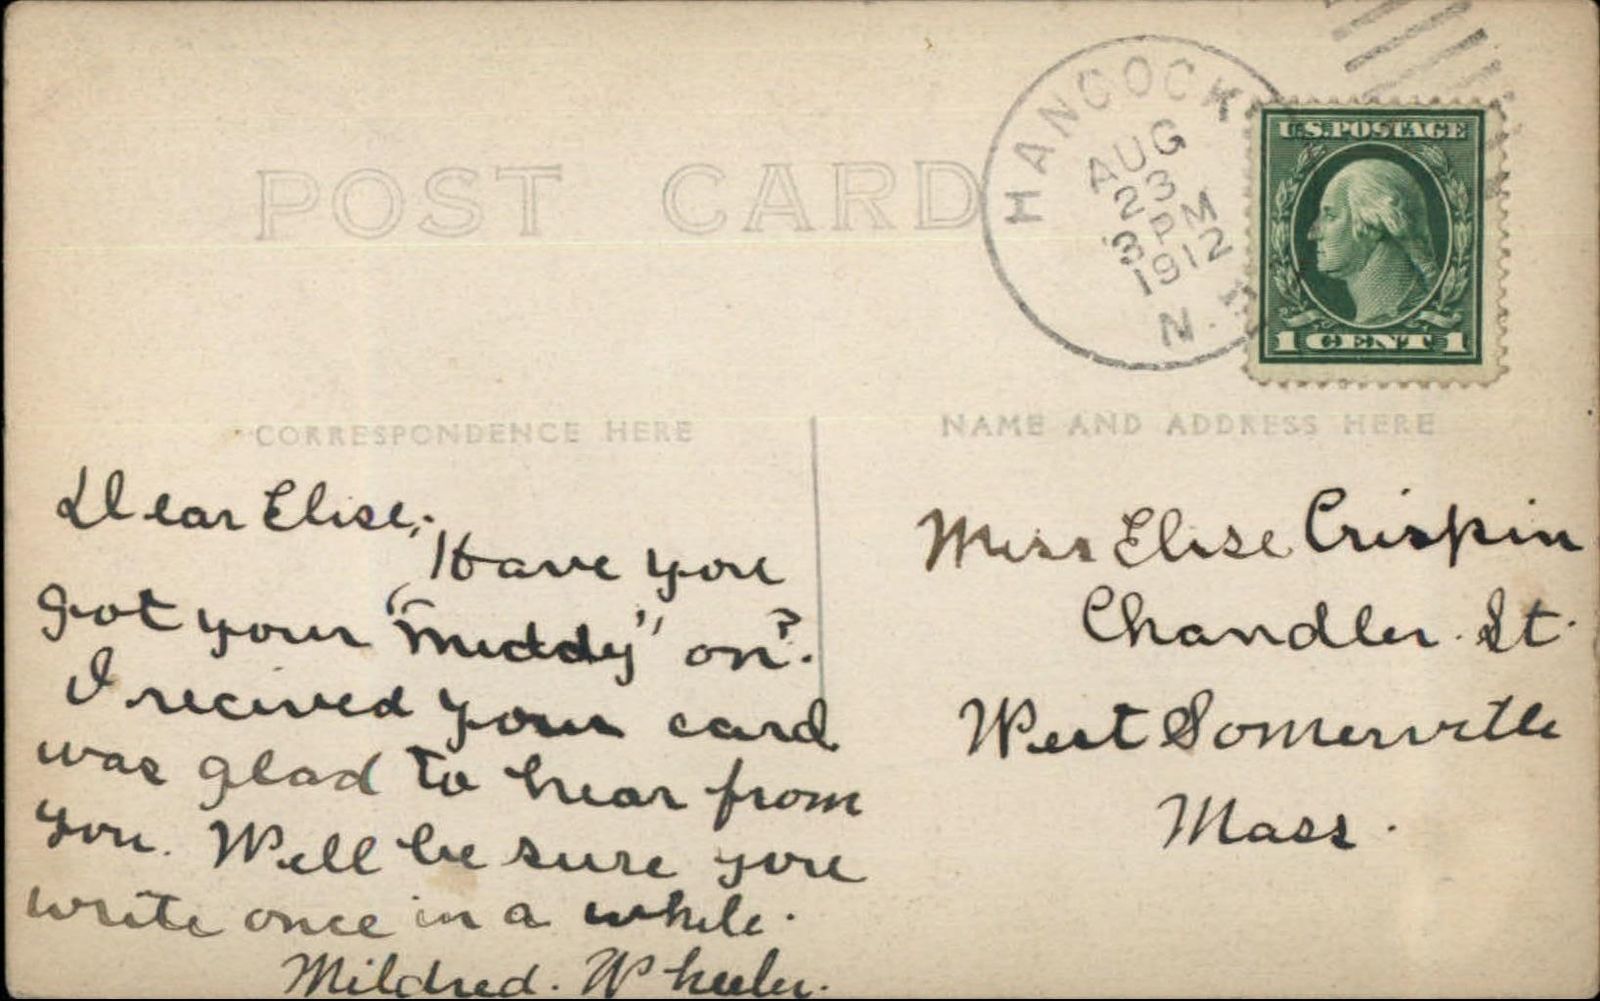 POST CARD
HANCOCK
AUG
23
3 PM
1912
N.H.
U.S. POSTAGE
1 CENT 1
CORRESPONDENCE HERE
NAME AND ADDRESS HERE
Dear Elise,
Have you
got your "middy" on?
I recived your card
was glad to hear from
you. Well be sure you
write once in a while.
Mildred. Wheeler.
Miss Elise Crispin
Chandler St.
West Somerville
Mass.